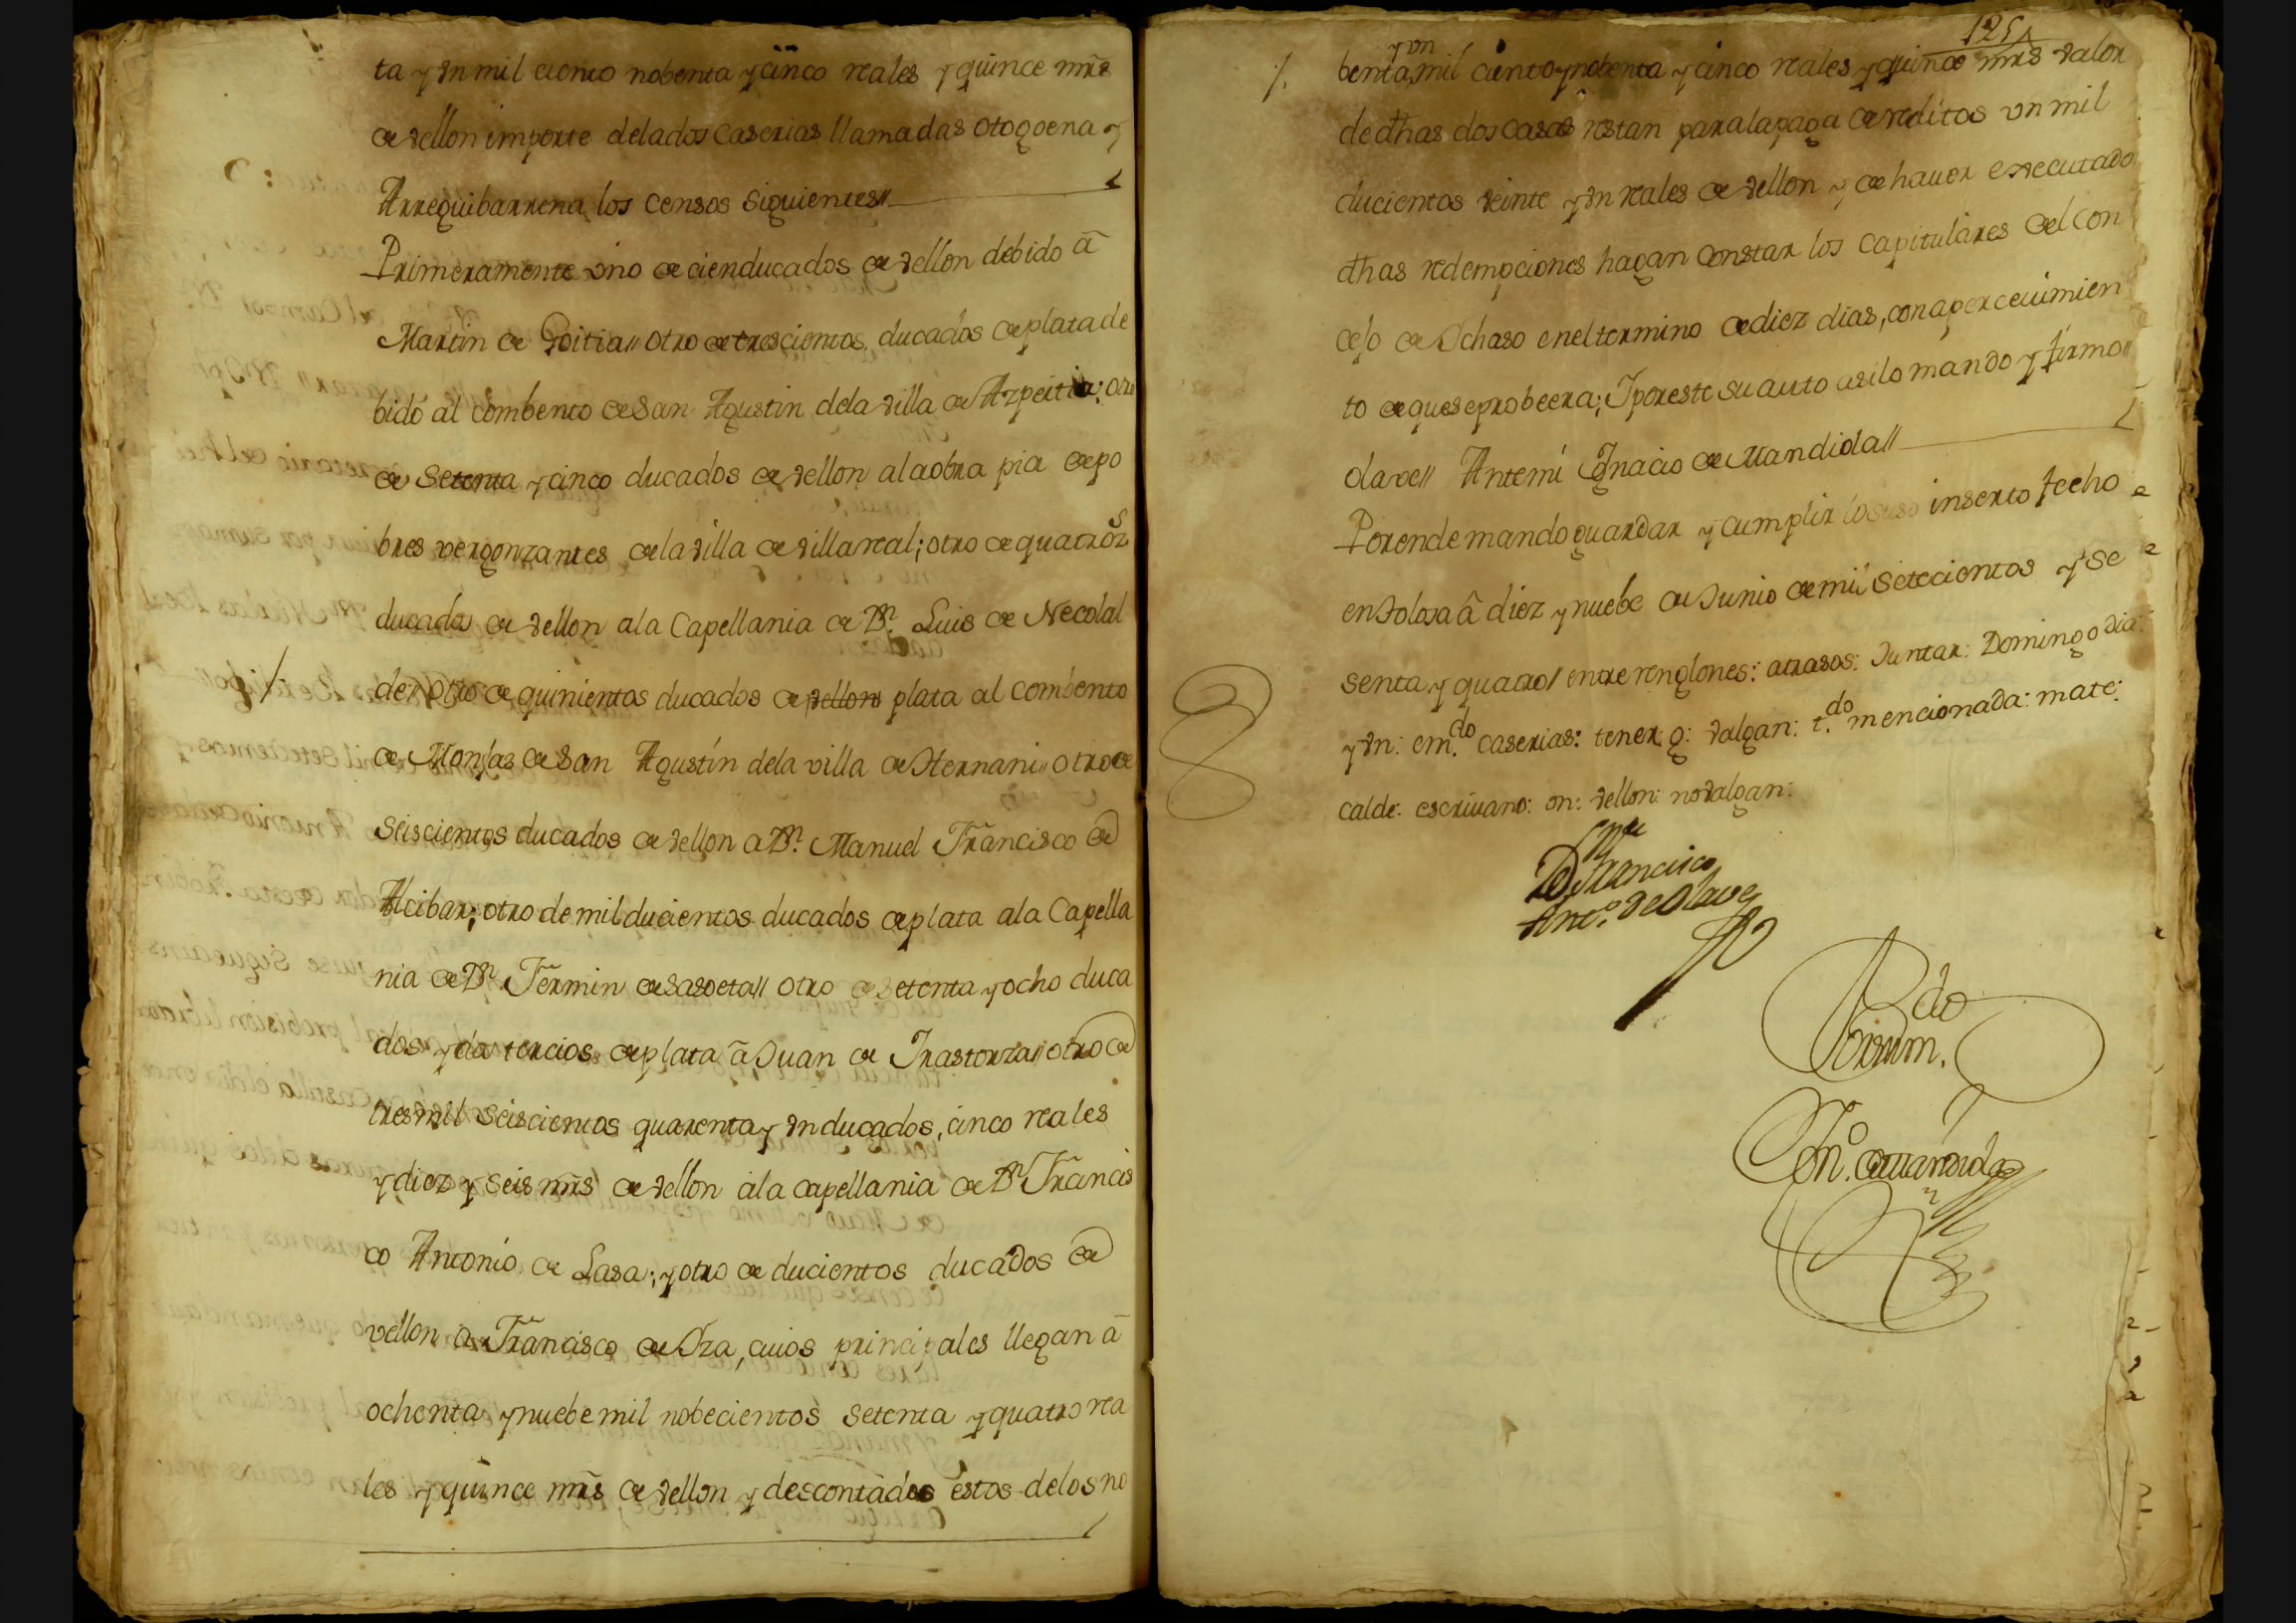 ta y vn mil ciento nobenta y cinco reales y quince mrs
de vellon importe de la dos caserias llamadas otogoena y
Arreguibarrena los censos siguientes//
Primeramente vno de cien ducados de vellon debido à
Martin de Goitia// otro de trescientos ducados de plata de
bido al combento de San Agustin de la villa de Azpeitia; otro
de setenta y cinco ducados de vellon a la obra pia de po
bres vergonzantes de la villa de villareal; otro de quatrozs
ducados de vellon a la Capellania de Dn. Luis de Necolal
de// otro de quinientos ducados de vellon plata al combento
de Monjas de San Agustín de la villa de Hernani// otro de
seiscientos ducados de vellon a Dn. Manuel Francisco de
Alcibar; otro de mil ducientos ducados de plata a la Capella
nia de Dn Fermin de Sasoeta// otro de setenta y ocho duca
dos y dos tercios de plata à Juan de Irastorza// otro de
tres mil seiscientos quarenta y vn ducados, cinco reales
y diez y seis mrs de vellon a la capellania de Dn Francis
co Antonio de Lasa; y otro de ducientos ducados de
vellon a Francisco de Oza, cuios principales llegan à
ochenta y nuebe mil nobecientos setenta y quatro rea
les y quince mrs de vellon y descontados estos de los no
125
y vn
benta mil ciento y nobenta y cinco reales y quince mrs valor
de dhas dos casas restan para la paga de reditos vn mil
ducientos veinte y vn reales de vellon y de hauer executado
dhas redempciones hagan constar los capitulares del con
cejo de Ychaso en el termino de diez dias, con aperceuimien
to de que se probeera; Y por este su auto asi lo mando y firmo//
Olave// Antemi Ignacio de Mandiola//
Por ende mando guardar y cumplir lo suso inserto fecho
en Tolosa â diez y nuebe de Junio de mil setecientos y se
senta y quatro// entre renglones: atrasos: Juntar: Domingo dia:
y vn: em.do caserias: tener. g: valgan: t.do mencionada: mate:
calde: escriuano: on: vellon: no valgan:
Dn Francisco
Ant.o de Olave
Por su m.do
Ign.o de Mandiola